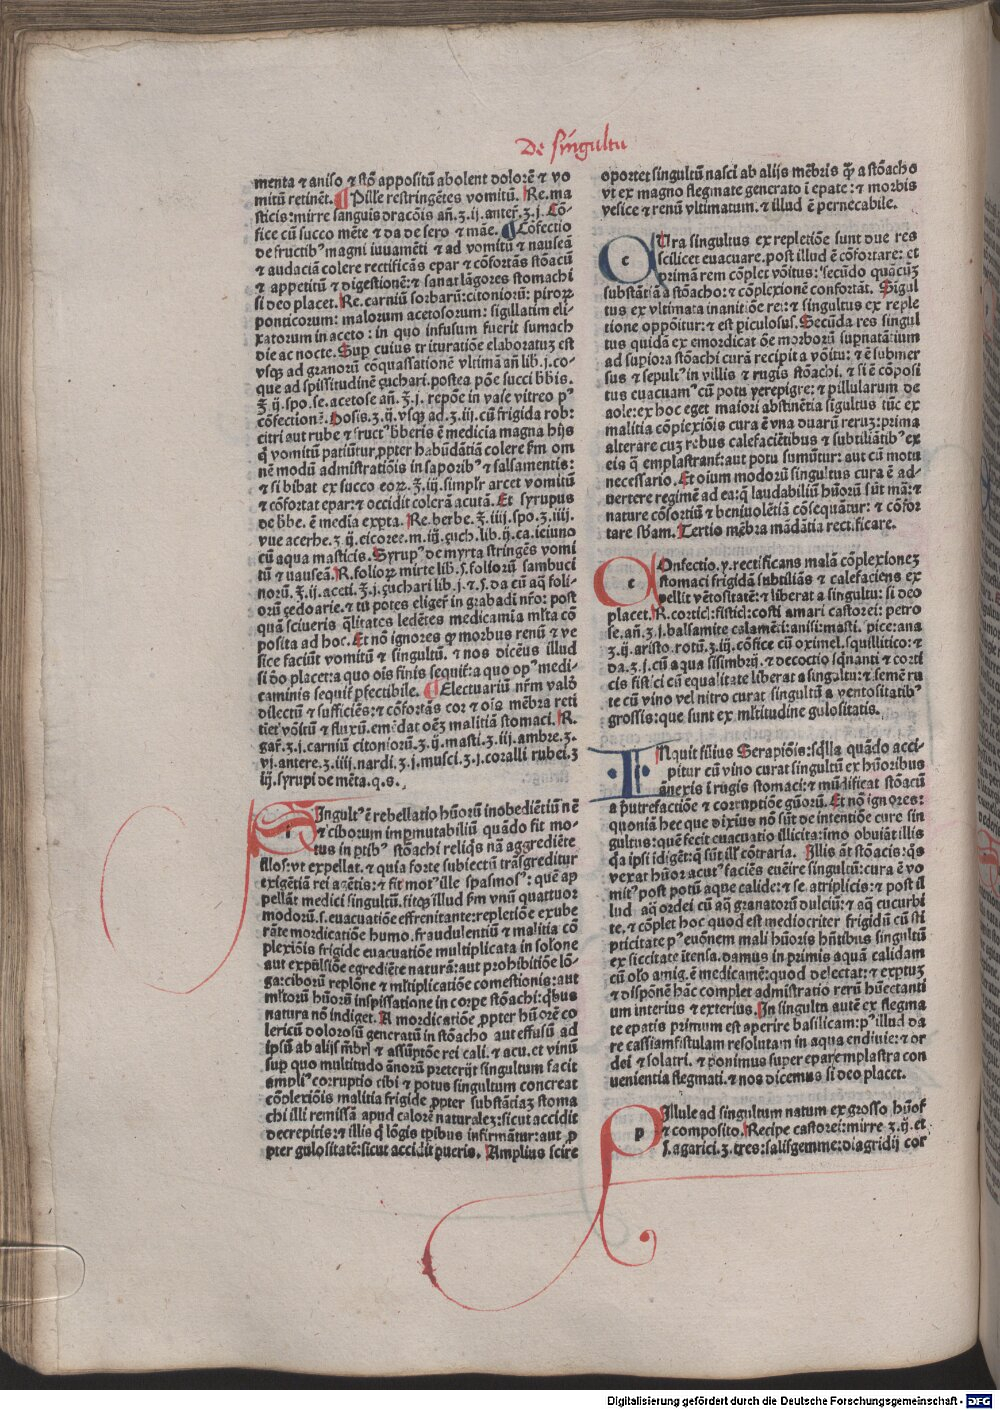 De singultu
menta ⁊ aniso ⁊ stõ appositũ abolent dolorẽ ⁊ vo
mitũ retinẽt. ¶ Pille restringẽtes vomitũ. Re. ma
sticis: mirre sanguis dracõis añ. ʒ. ij. anteř. ʒ. j. Cõ-
fice cũ succo mẽte ⁊ da de sero ⁊ mãe. ¶ Cõfectio
de fructibꝰ magni iuuamẽti ⁊ ad vomitũ ⁊ nauseã
⁊ audaciã colere rectificãs epar ⁊ cõfortãs stõacũ
⁊ appetitũ ⁊ digestionẽ: ⁊ sanat lãgores stomachi
si deo placet. Re. carniũ sorbarũ: citoniorũ: piroꝝ
ponticorum: malorum acetosorum: sigillatim eli-
xatorum in aceto: in quo infusum fuerit sumach
die ac nocte. Sup cuius trituratiõe elaboratuʒ est
vsqʒ ad granorũ cõquassationẽ vltimã añ lib. j. co-
que ad spissitudinẽ çuchari. postea põe succi bbis.
ʒ. ij. spo. se. acetose añ. ʒ. j. repõe in vase vitreo pꝰ
cõfectionẽ. Dosis. ʒ. ij. vsqʒ ad. ʒ. iij. cũ frigida rob:
citri aut rube ⁊ fructꝰ bberis ẽ medicia magna hijs
q̃ vomitũ patiũtur, ꝓpter habũdãtiã colere fm om
nẽ modũ admistratiõis in saporibꝰ ⁊ salsamentis:
⁊ si bibat ex succo eoꝝ. ʒ. iij. simplr arcet vomitũ
⁊ cõfortat epar: ⁊ occidit colerã acutã. Et syrupus
de bbe. ẽ media expta. Re. herbe. ʒ. iiij. spo. ʒ. iiij.
vue acerbe. ʒ. ij. eicoree. m. iij. çuch. lib. ij. ca. ieiuno
cũ aqua masticis. Syrupꝰ de myrta stringẽs vomi
tũ ⁊ uauseã. R. folioꝝ mirte lib. s. foliorũ sambuci
norũ. ʒ. ij. aceti. ʒ. j. çuchari lib. j. ⁊ s. da cũ aq̃ foli-
orũ çedoarie. ⁊ tu potes eliger̃ in grabadĩ nr̃o: post
quã sciueris q̃litates ledẽtes medicamia mlta cõ
posita ad hoc. Et nõ ignores qʒ morbus renũ ⁊ ve
sice faciũt vomitũ ⁊ singultũ. ⁊ nos dicẽus illud
si dõ placet: a quo ois finis sequit̃: a quo opꝰ medi-
caminis sequit̃ pfectibile. ¶ Electuariũ nr̃m valõ
dilectũ ⁊ sufficiẽs: ⁊ cõfortãs cor ⁊ oĩa mẽbra reti
net vomitũ ⁊ fluxũ. emẽdat oẽʒ malitiã stomaci. R.
gař. ʒ. j. carniũ citoniorũ. ʒ. ij. masti. ʒ. iij. ambre. ʒ.
vj. antere. ʒ. iiij. nardi. ʒ. j. musci. ʒ. j. coralli rubei. ʒ
iij. syrupi de mẽta. q. s.
SIngultꝰ ẽ rebellatio hũorũ inobediẽtiũ nẽ
⁊ ciborum impmutabiliũ quãdo fit mo-
tus in ptibꝰ stõachi reliqis nã aggrediẽte
illos: vt expellat. ⁊ quia forte subiectũ trãsgreditur
exigẽtiã rei agẽtis: ⁊ fit motꝰ ille spasmosꝰ: quẽ ap
pellãt medici singultũ. fitqʒ illud fm vnũ quattuor
modorũ. s. euacuatiõe effrenitante: repletiõe exube
rãte mordicatiõe humo. fraudulentiũ ⁊ malitia cõ
plexiõis frigide euacuatiõe multiplicata in solone
aut expulsiõe egrediẽte naturã: aut prohibitiõe lõ-
ga: ciborũ replõne ⁊ mltiplicatiõe comestionis: aut
mltorũ hũorũ inspissatione in corpe stõachi: qbus
natura nõ indiget. A mordicatiõe ꝓpter hũorẽ co
lericũ dolorosũ generatũ in stõacho aut effusũ ad
ipsũ ab alijs mẽbrĩ ⁊ assũptõe rei cali. ⁊ acu. et vinũ
sup quo multitudo ãnorũ preterijt singultum facit
ampliꝰ corruptio cibi ⁊ potus singultum concreat
cõplexiõis malitia frigide ꝓpter substãciaʒ stoma
chi illi remissã apud calorẽ naturaleʒ: sicut accidit
decrepitis: ⁊ illis q̃ lõgis tpibus infirmãtur: aut ꝓ
pter gulositatẽ: sicut accidit pueris. Amplius scire
oportet singultũ nasci ab alijs mẽbris qʒ a stõacho
vt ex magno flegmate generato ĩ epate: ⁊ morbis
vesice ⁊ renũ vltimatum. ⁊ illud ẽ pernecabile.
CUra singultus ex repletiõe sunt due res
scilicet euacuare. post illud ẽ cõfortare: et
primã rem cõplet võitus: secũdo quãcũʒ
substãtiã a stõacho: ⁊ cõplexionẽ confortãt. Sigul
tus ex vltimata inanitiõe rei: ⁊ singultus ex reple
tione oppõitur: ⁊ est piculosus. Secũda res singul
tus quidã ex emordicat ões morborũ supnatãtium
ad supiora stõachi curã recipit a võitu: ⁊ ẽ submer
sus ⁊ sepultꝰ in villis ⁊ rugis stõachi. ⁊ si ẽ cõposi
tus euacuamꝰ cũ potu yerepigre: ⁊ pillularum de
aole: ex hoc eget maiori abstinẽtia sigultus tũc ex
malitia cõplexiõis cura ẽ vna duarũ reruʒ: prima
alterare cuʒ rebus calefaciẽtibus ⁊ subtiliãtibꝰ ex
eis q̃ emplastrant̃: aut potu sumũtur: aut cũ motu
necessario. Et oium modorũ singultus cura ẽ ad-
uertere regimẽ ad ea: q̃ laudabiliũ hũorũ sũt mã: ⁊
nature cõsortiũ ⁊ beniuolẽtiã cõsequãtur: ⁊ cõfor
tare sbam. Tertio mẽbra mãdãtia rectificare.
COnfectio. y. rectificans malã cõplexioneʒ
stomaci frigidã subtiliãs ⁊ calefaciens ex
pellit vẽtositatẽ: ⁊ liberat a singultu: si deo
placet. R. corticĩ: fisticĩ: costi amari castorei: petro
se. añ. ʒ. j. balsamite calamẽti: anisi: masti. pice: ana
ʒ. ij. aristo. rotũ. ʒ. iij. cõfice cũ oximel. squillitico: ⁊
da. ʒ. j. cũ aqua sisimbrij. ⁊ decoctio sqnanti ⁊ corti
cis fistici eũ equalitate liberat a singultu: ⁊ semẽ ru
te cũ vino vel nitro curat singultũ a ventositatibꝰ
grossis: que sunt ex mltitudine gulositatis.
INquit filius Serapiõis: sqlla quãdo acci-
pitur cũ vino curat singultũ ex hũoribus
ãnexis ĩ rugis stomaci: ⁊ mũdificat stõacũ
a putrefactiõe ⁊ corruptiõe gũorũ. Et nõ ignores:
quoniã hec que diximus nõ sũt de intentiõe cure sin
gultus: quẽ fecit euacuatio illicita: imo obuiãt illis
q̃a ipsi idigẽt: q̃ sũt illi cõtraria. Illis ãt stõacis: q̃s
vexat hũor acutꝰ faciẽs euẽire singultũ: cura ẽ vo
mitꝰ post potũ aque calide: ⁊ se. atriplicis: ⁊ post il
lud aq̃ ordei cũ aq̃ granatorũ dulciũ: ⁊ aq̃ cucurbi
te. ⁊ cõplet hoc quod est mediocriter frigidũ cũ sti
pticitate pꝰ euõnem mali hũoris hñtibus singultũ
ex siccitate ĩtensa. damus in primis aquã calidam
cũ olo amig. ẽ medicamẽ: quod delectat: ⁊ exptuʒ
⁊ disponẽ hãc complet admistratio rerũ hũectanti
um interius ⁊ exterius. In singultu autẽ ex flegma
te epatis primum est aperire basilicam: pꝰ illud da
re cassiamfistulam resolutam in aqua endiuie: ⁊ or
dei ⁊ solatri. ⁊ ponimus super epar emplastra con
uenientia flegmati. ⁊ nos dicemus si deo placet.
PIllule ad singultum natum ex grosso hũore
⁊ composito. Recipe castorei: mirre ʒ. ij. et
s. agarici. ʒ. tres: salisgemme: diagridij cor
Digitalisierung gefördert durch die Deutsche Forschungsgemeinschaft - DFG